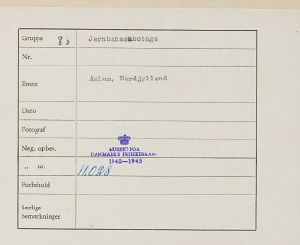 Gruppe 9b Jernbanesabotage
Nr.
Emne Aulum, Nordjylland
Dato
Fotograf
Neg. opbev. MUSEET FOR
DANMARKS FRIHEDSKAMP
1940—1945
„ nr. 11.028
Forbehold
Særlige
bemærkninger